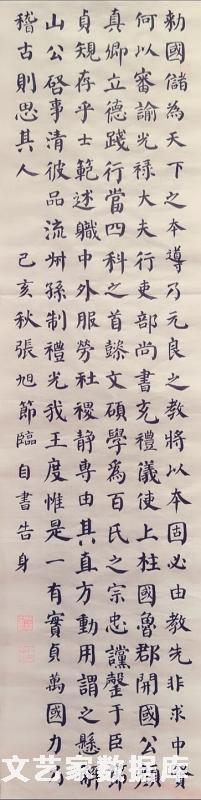 勅國儲為天下之本導乃元良之教將以本固必由教先非求中賢
何以審諭光祿大夫行吏部尚書充禮儀使上柱國魯郡開國公顏
真卿立德踐行當四科之首懿文碩學為百氏之宗忠讜罄于臣節
貞規存乎士範述職中外服勞社稷靜專由其直方動用謂之懸解
山公啓事清彼品流叔孫制禮光我王度惟是一有實貞萬國力乃
稽古則思其人 己亥秋張旭節臨自書告身
文艺家数据中心